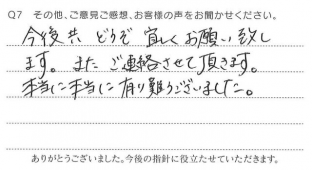 Q7 その他、ご意見ご感想、お客様の声をお聞かせください。
今後共 どうぞ 宜しくお願い致し
ます。また ご連絡させて頂きます。
本当に本当に有り難うございました。
ありがとうございました。今後の指針に役立たせていただきます。